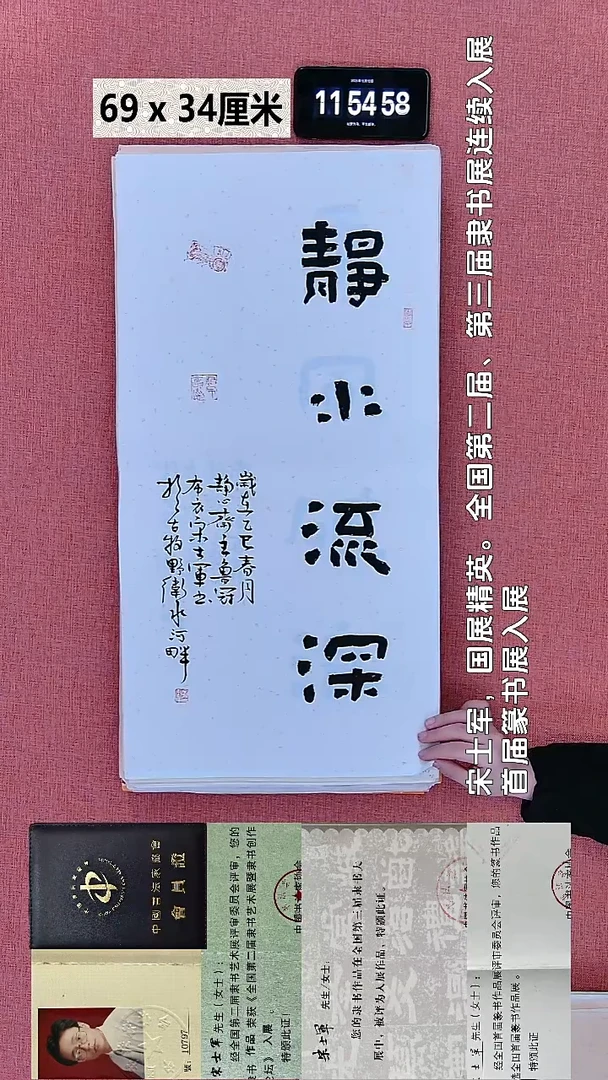 69 x 34厘米
11 54 58
静水流深
歲在乙巳春月
静心齋主魯冠
布衣宋士軍書
於古牧野衛水河畔
宋士军,国展精英。全国第二届、第三届隶书展连续入展
首届篆书展入展
中國書法家協會
會員證
號: 10797
宋士军 先生(女士):
经全国第二届隶书艺术展评审委员会评审,您的
隶书 作品 荣获《全国第二届隶书艺术展暨隶书创作
论坛》 入展 。
特颁此证!
宋士軍 先生(女士):
您的隶书作品在全国第三届隶书大
展中,被评为入展作品,特颁此证。
士军 先生(女士):
经全国首届篆书作品展评审委员会评审,您的篆书作品
全国首届篆书作品展。
特颁此证